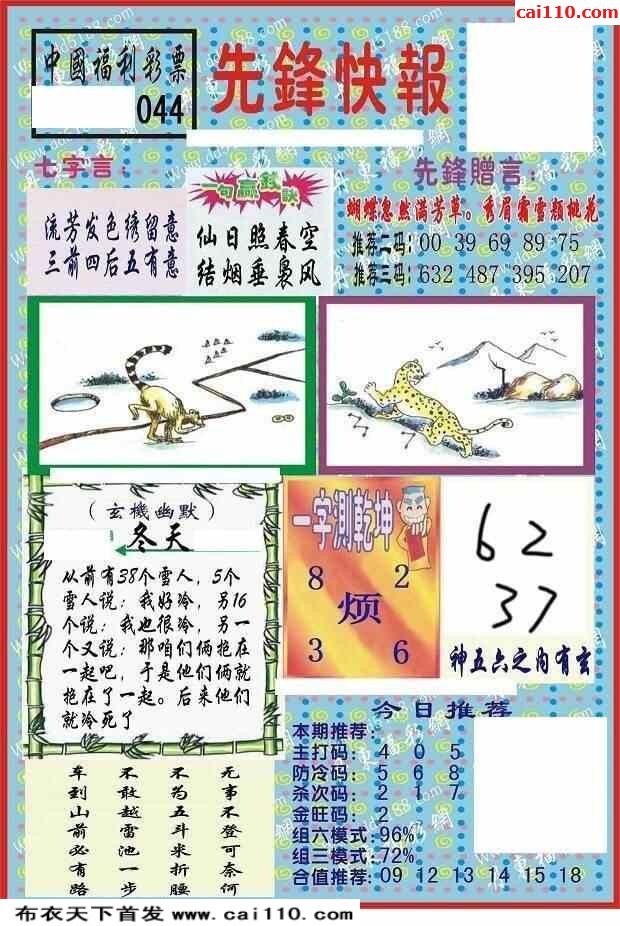 cai110.com
中國福利彩票
044
先鋒快報
七字言：
流芳发色绣留意
三前四后五有意
一句赢钱诀
仙日照春空
结烟垂袅风
先鋒贈言：
蝴蝶忽然满芳草。秀眉霜雪颜桃花
推荐二码：00 39 69 89 75
推荐三码：632 487 395 207
（玄機幽默）
冬天
从前有38个雪人，5个
雪人说：我好冷，另16
个说：我也很冷，另一
个又说：那咱们俩抱在
一起吧，于是他们俩就
抱在了一起。后来他们
就冷死了
一字測乾坤
8 2
烦
3 6
62
37
神五六之内有玄
车到山前必有路
不敢越雷池一步
不为五斗米折腰
无事不登可奈何
今日推荐
本期推荐：
主打码：4 0 5
防冷码：5 6 8
杀次码：2 1 7
金旺码：2
组六模式：96%
组三模式：72%
合值推荐：09 12 13 14 15 18
布衣天下首发 www.cai110.com